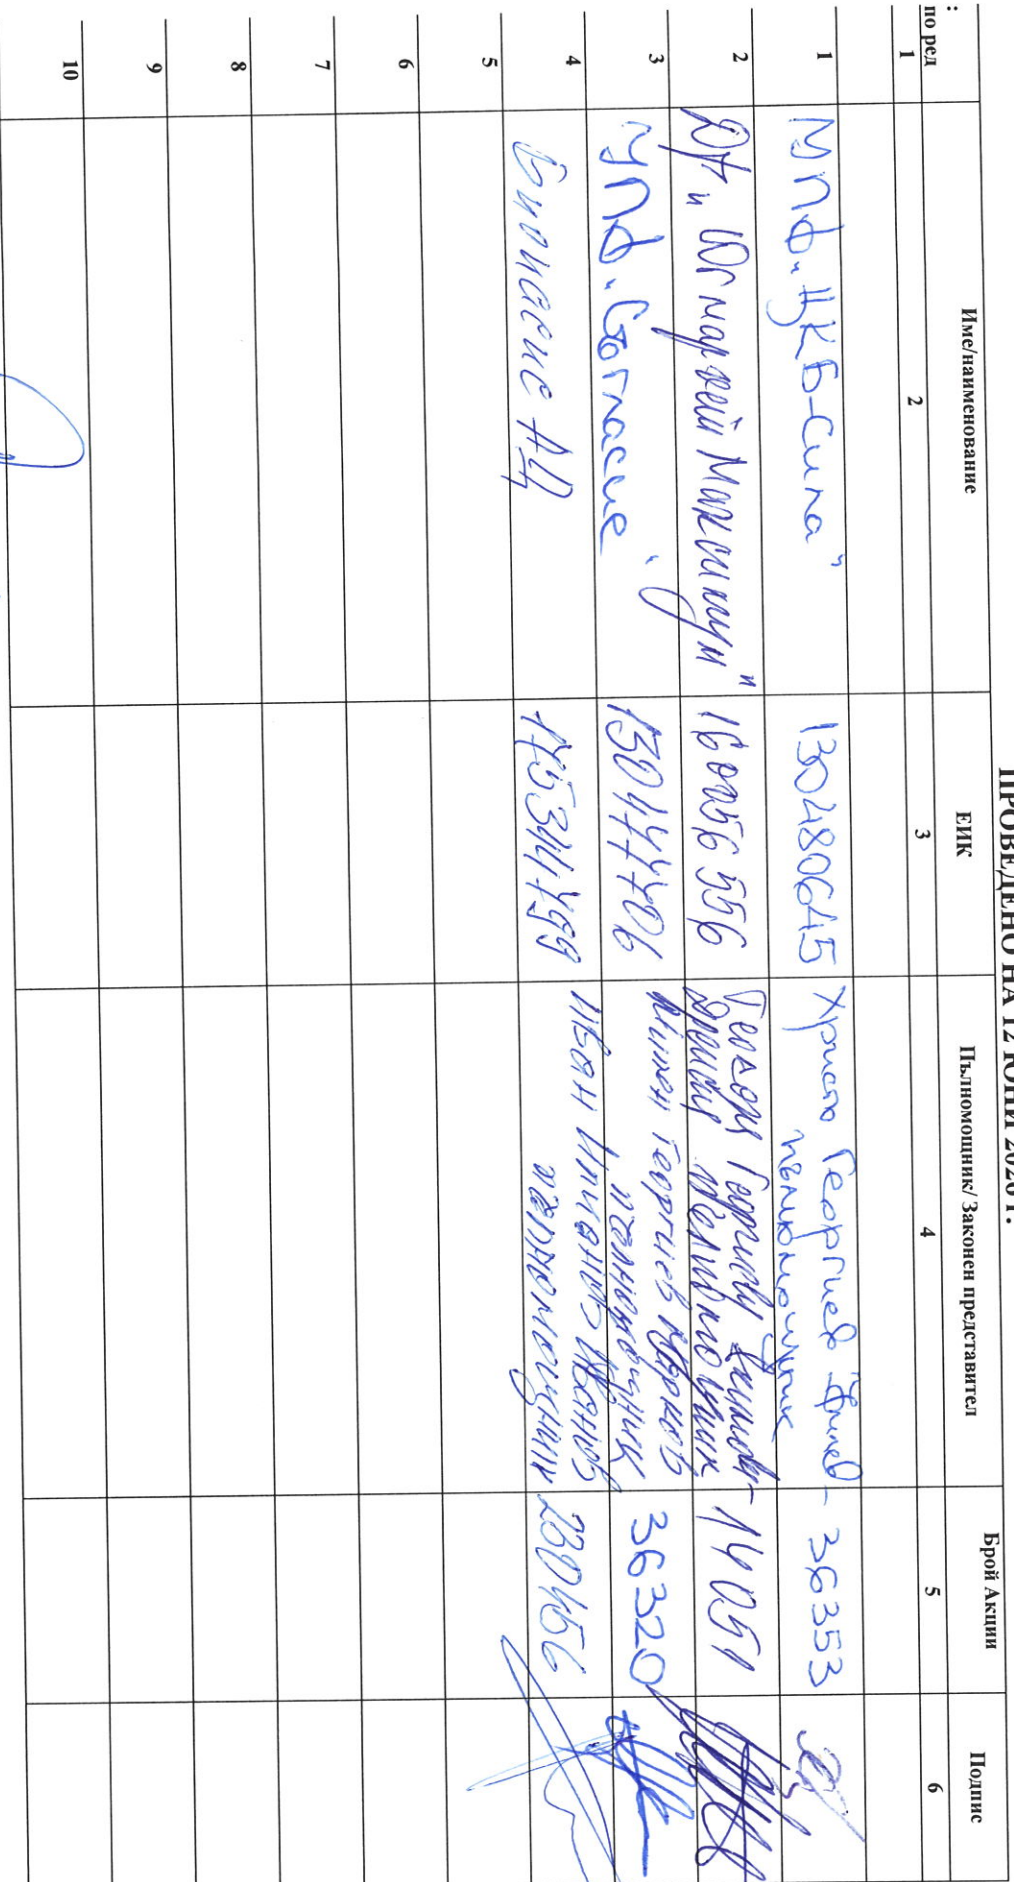 ПРОВЕДЕНО НА 12 ЮНИ 2020 Г.
:
по ред
Име/наименование
ЕИК
Пълномощник/ Законен представител
Брой Акции
Подпис
1 2 3 4 5 6
1 УПФ „ЦКБ-Сила" 130480645 Христо Георгиев - 36353
пълномощник
2 ДФ „Юг маркет Максимум" 160056556 Георги - 14051
пълномощник
3 УПФ „Съгласие" 130477706 Георгиев 36320
пълномощник
4 АД 175344799 Иван Илианов Иванов 230456
пълномощник
5
6
7
8
9
10